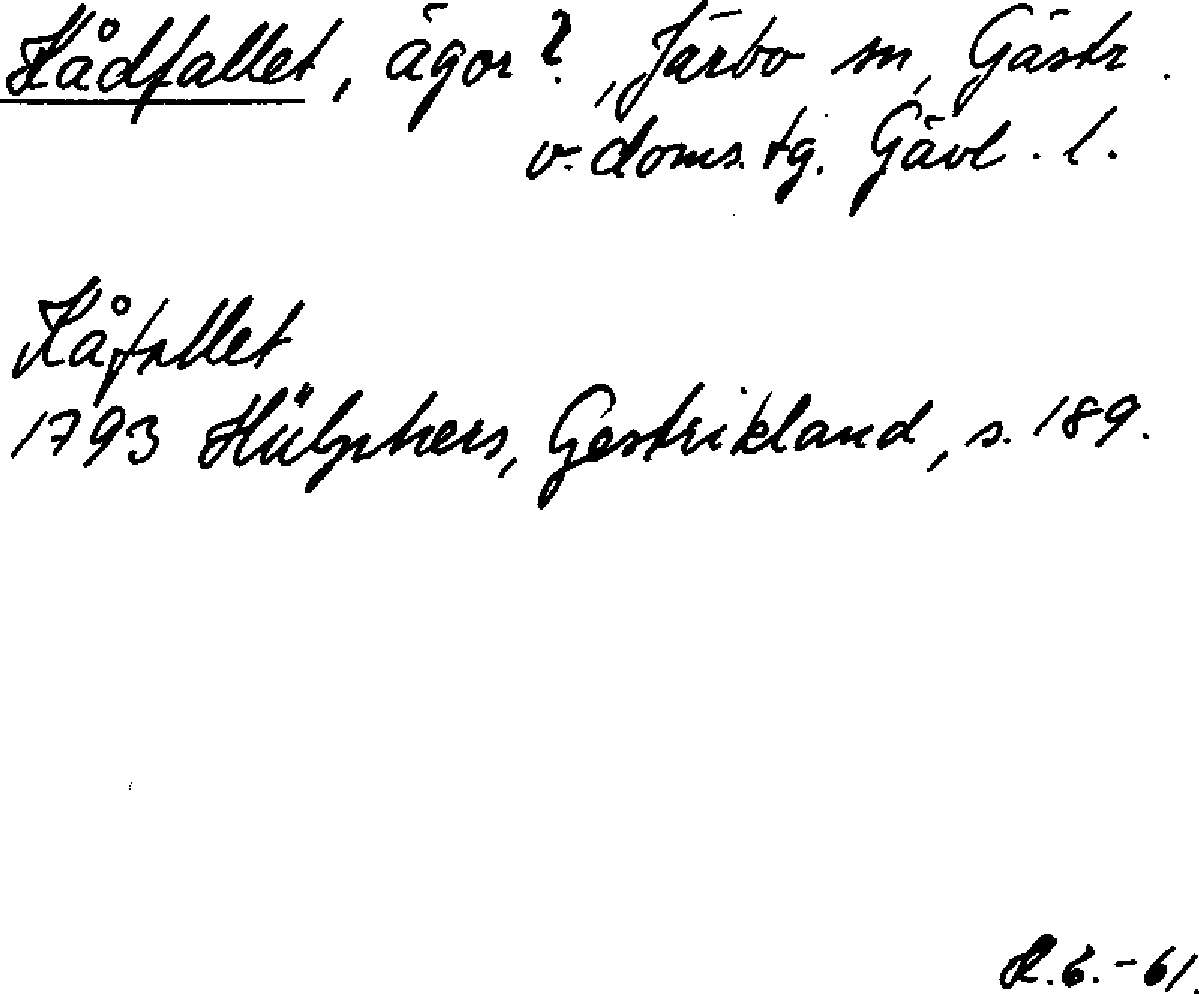 Kådfallet, ägor?, Järbo sn, Gästr.
v. doms.tg. Gävl. l.
Kåfallet
1793 Hülphers, Gestrikland, s. 189.
R.6.-61.